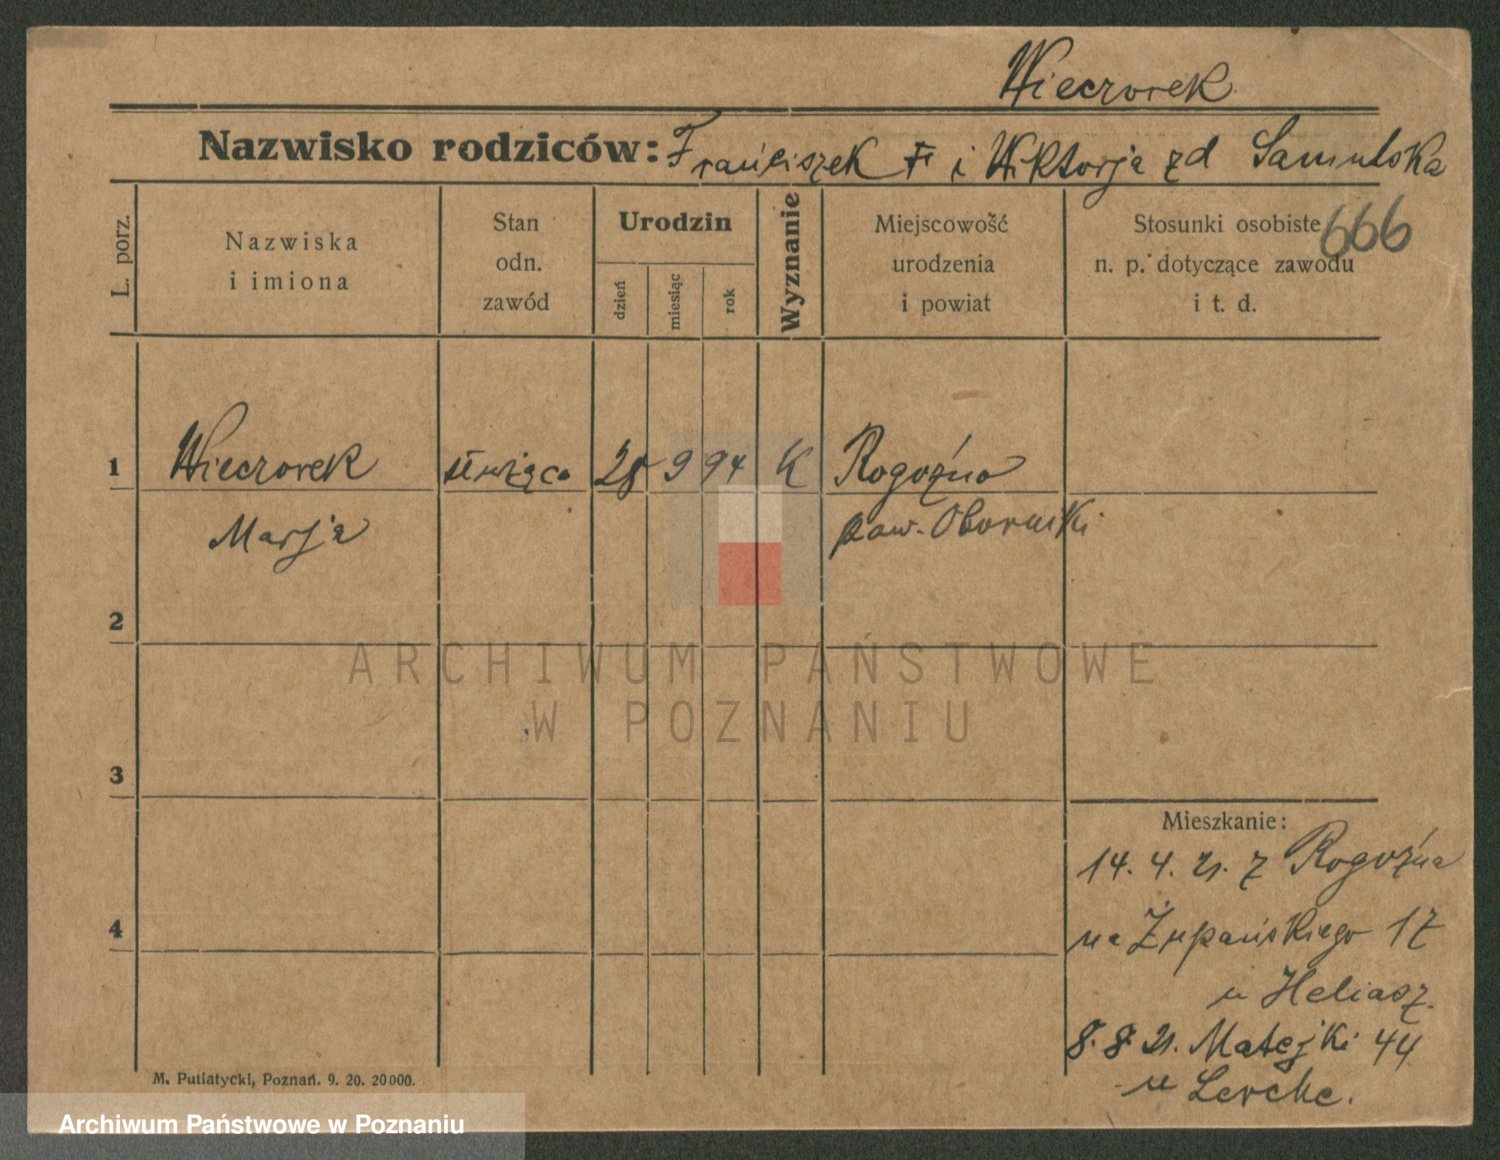 Wieczorek
Nazwisko rodziców: Franciszek i Wiktorja zd Samulska
666
L. porz.
Nazwiska
i imiona
Stan
odn.
zawód
Urodzin
dzień
miesiąc
rok
Wyznanie
Miejscowość
urodzenia
i powiat
Stosunki osobiste
n. p. dotyczące zawodu
i t. d.
1 Wieczorek służąca 28 9 94 K Rogoźno
Marja pow. Obornicki
2
3
4
Mieszkanie:
14. 4. 21. z Rogoźna
na Żupańskiego 17
u Heliasz.
8. 8. 21. Matejki 44
u Lerche.
M. Putiatycki, Poznań. 9. 20. 20000.
ARCHIWUM PAŃSTWOWE
W POZNANIU
Archiwum Państwowe w Poznaniu